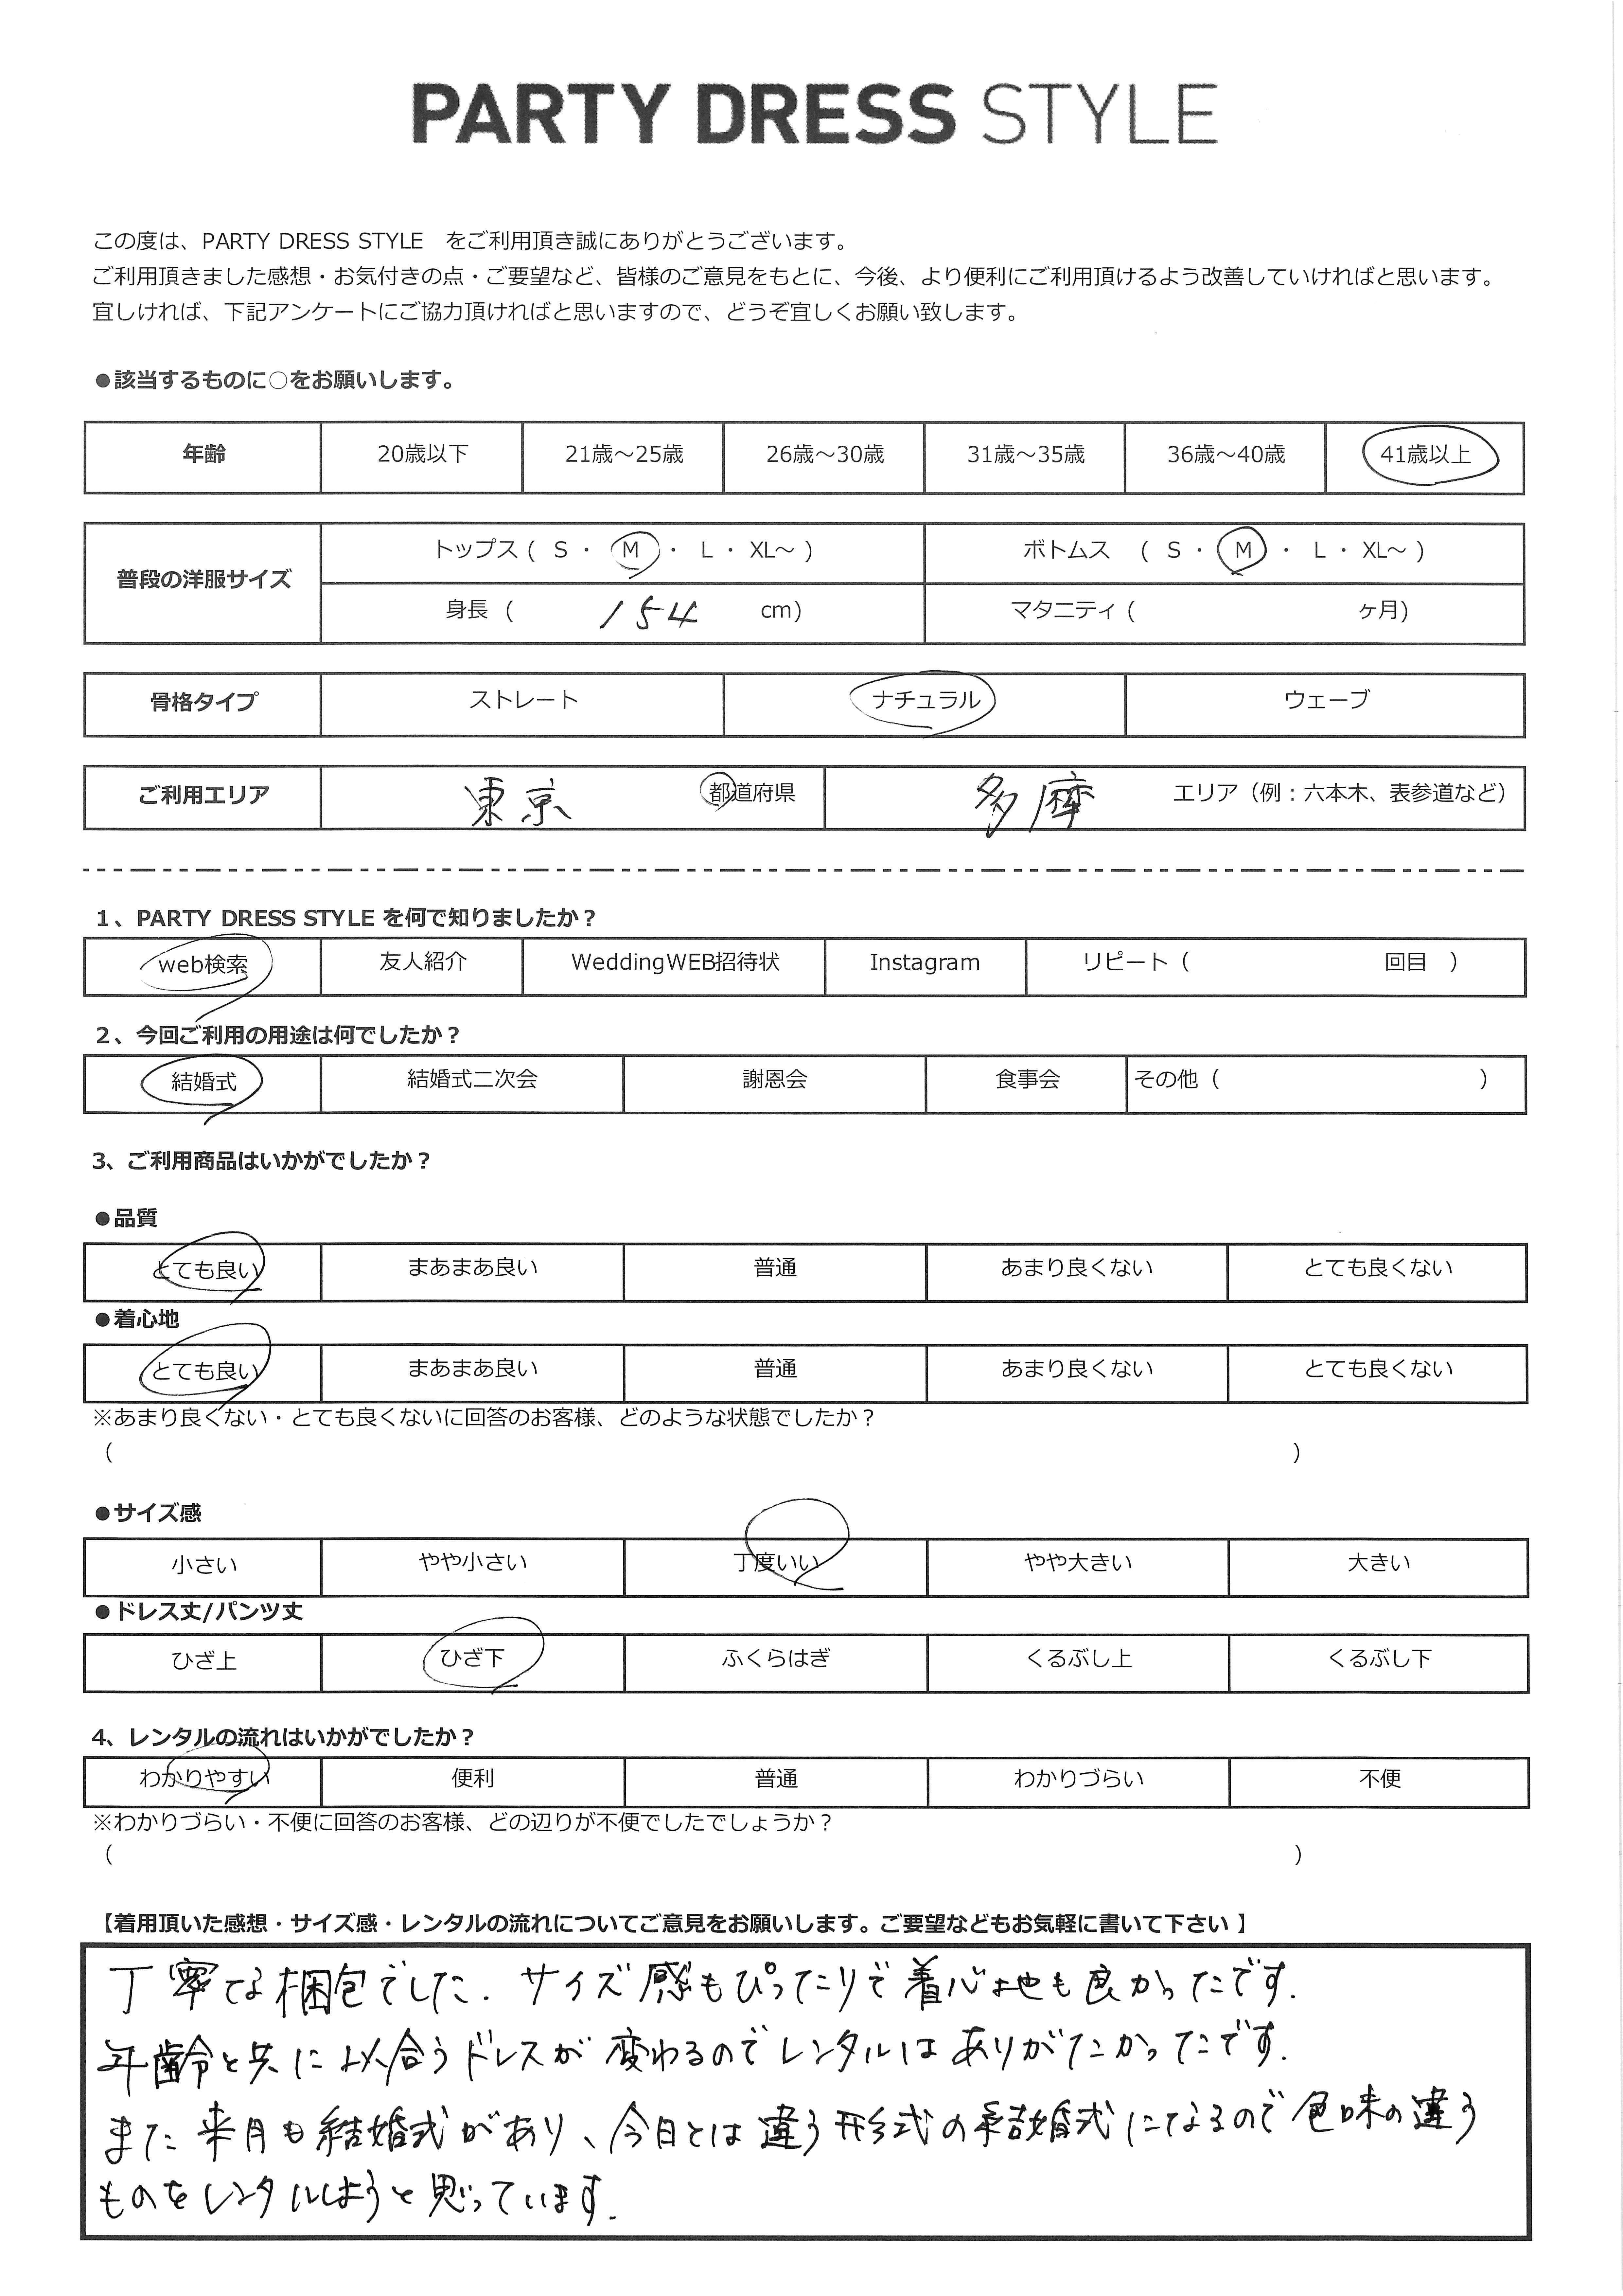 PARTY DRESS STYLE
この度は、PARTY DRESS STYLE　をご利用頂き誠にありがとうございます。
ご利用頂きました感想・お気付きの点・ご要望など、皆様のご意見をもとに、今後、より便利にご利用頂けるよう改善していければと思います。
宜しければ、下記アンケートにご協力頂ければと思いますので、どうぞ宜しくお願い致します。
●該当するものに○をお願いします。
年齢 20歳以下 21歳～25歳 26歳～30歳 31歳～35歳 36歳～40歳 41歳以上
普段の洋服サイズ
トップス ( S ・ M ・ L ・ XL～ ) ボトムス ( S ・ M ・ L ・ XL～ )
身長 ( 154 cm) マタニティ ( ヶ月)
骨格タイプ ストレート ナチュラル ウェーブ
ご利用エリア 東京 都道府県 多摩 エリア（例：六本木、表参道など）
1、PARTY DRESS STYLE を何で知りましたか？
web検索 友人紹介 WeddingWEB招待状 Instagram リピート（ 回目 ）
2、今回ご利用の用途は何でしたか？
結婚式 結婚式二次会 謝恩会 食事会 その他（ ）
3、ご利用商品はいかがでしたか？
●品質
とても良い まあまあ良い 普通 あまり良くない とても良くない
●着心地
とても良い まあまあ良い 普通 あまり良くない とても良くない
※あまり良くない・とても良くないに回答のお客様、どのような状態でしたか？
（ ）
●サイズ感
小さい やや小さい 丁度いい やや大きい 大きい
●ドレス丈/パンツ丈
ひざ上 ひざ下 ふくらはぎ くるぶし上 くるぶし下
4、レンタルの流れはいかがでしたか？
わかりやすい 便利 普通 わかりづらい 不便
※わかりづらい・不便に回答のお客様、どの辺りが不便でしたでしょうか？
（ ）
【着用頂いた感想・サイズ感・レンタルの流れについてご意見をお願いします。ご要望などもお気軽に書いて下さい 】
丁寧な梱包でした. サイズ感もぴったりで着心地も良かったです.
年齢と共に似合うドレスが変わるのでレンタルはありがたかったです.
また来月も結婚式があり、今日とは違う形式の結婚式になるので色味の違う
ものをレンタルしようと思っています.